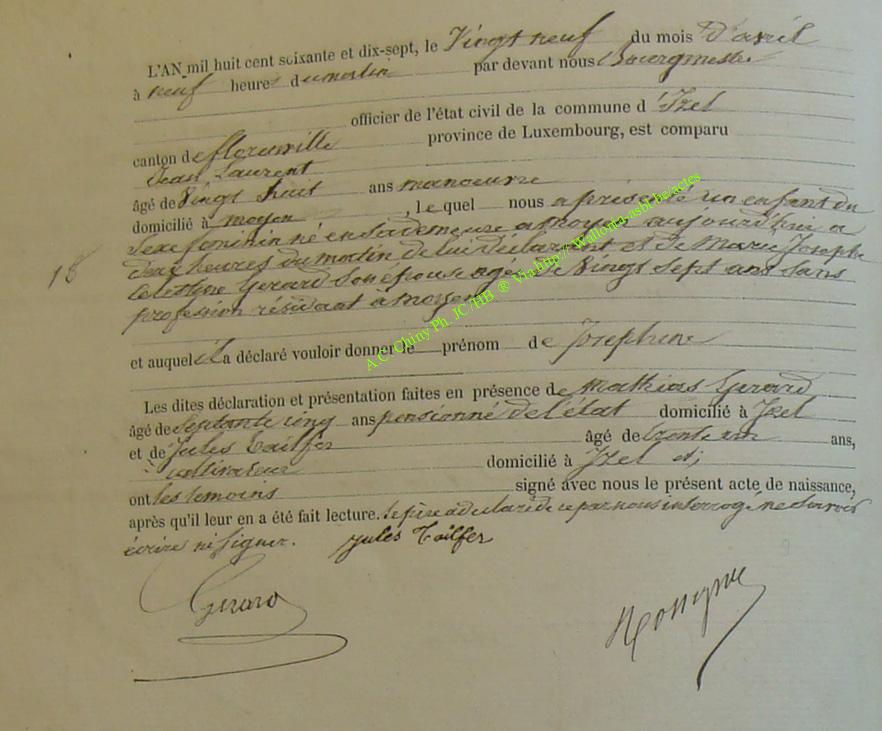 L'AN mil huit cent soixante et dix-sept, le Vingt neuf du mois d'avril
à neuf heures du matin par devant nous Bourgmestre
officier de l'état civil de la commune d'Izel
canton de florenville province de Luxembourg, est comparu
Jean Laurent
âgé de Vingt huit ans manoeuvre
domicilié à moyen, le quel nous a présenté un enfant du
sexe feminin né en sa demeure a moyen aujourd'hui a
deux heures du matin de lui déclarant et de Marie Josephe
18
Celestine Gerard son épouse agée de Vingt sept ans sans
profession résidant a moyen
et auquel il a déclaré vouloir donner le prénom de Josephine
Les dites déclaration et présentation faites en présence de Mathias Gerard
âgé de Septante cinq ans pensionné de l'état domicilié à Izel
et de Jules Tailfer âgé de trente un ans,
cultivateur domicilié à Izel et;
ont les temoins signé avec nous le présent acte de naissance,
après qu'il leur en a été fait lecture. le père a déclaré de ce par nous interrogé ne savoir
écrire ni signer. Jules Tailfer
Gerard
A.C. Chiny Ph. JC/HB ® Via http://wallonia-asbl.be/actes